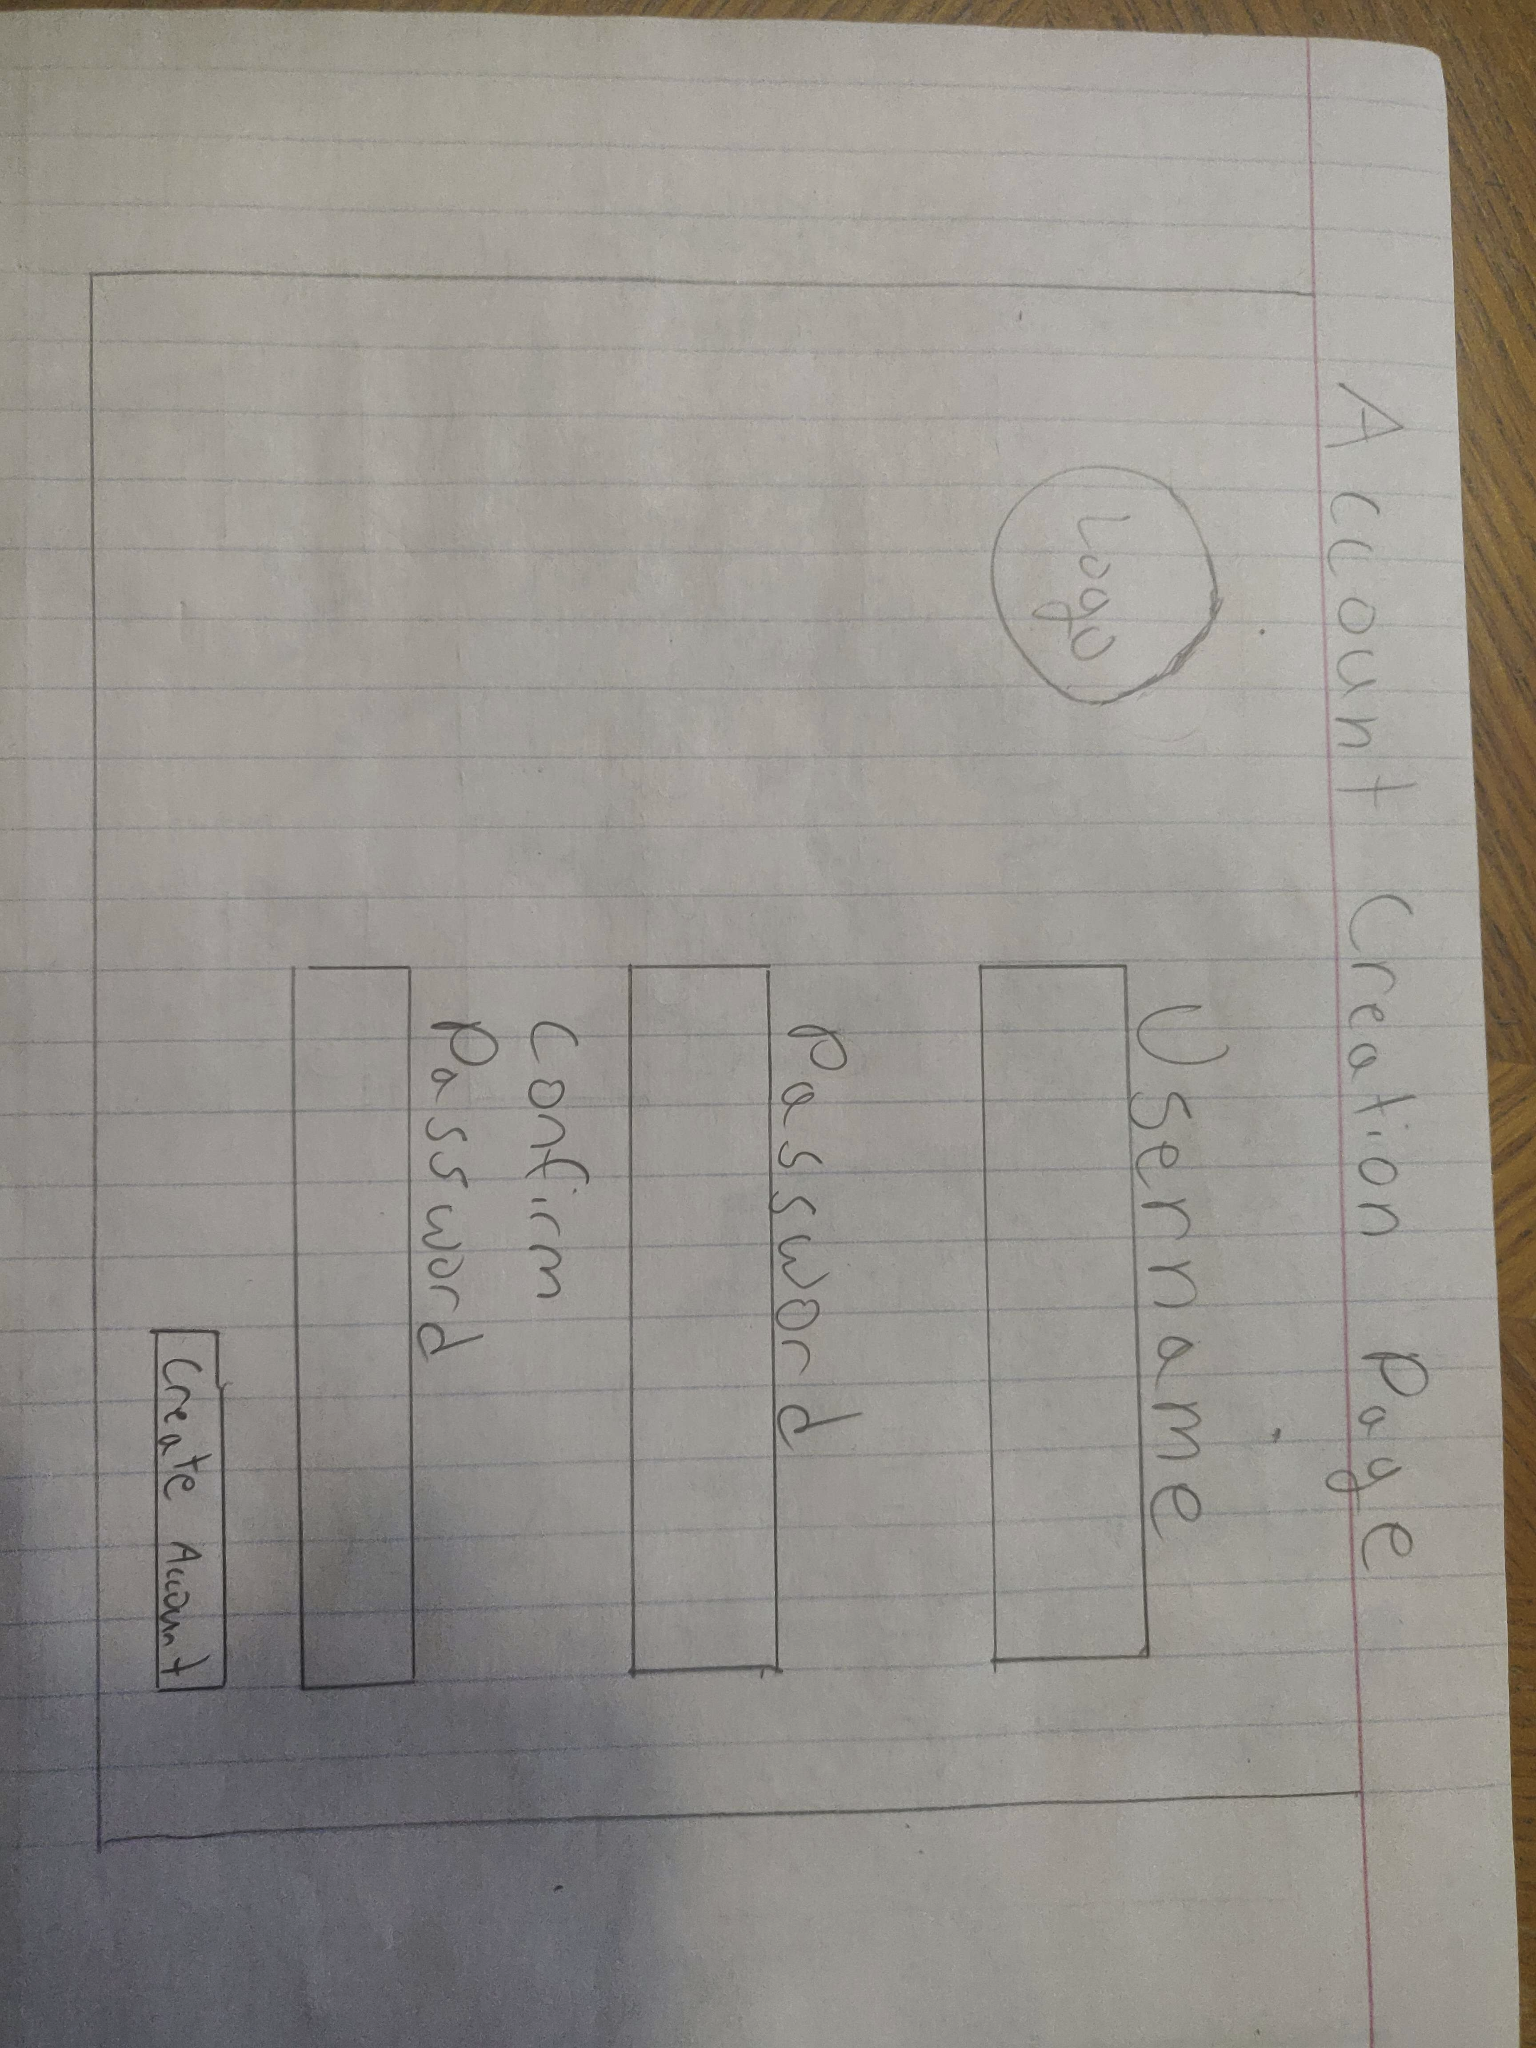 Account Creation Page
Logo
Username
Password
Confirm
Password
Create Account